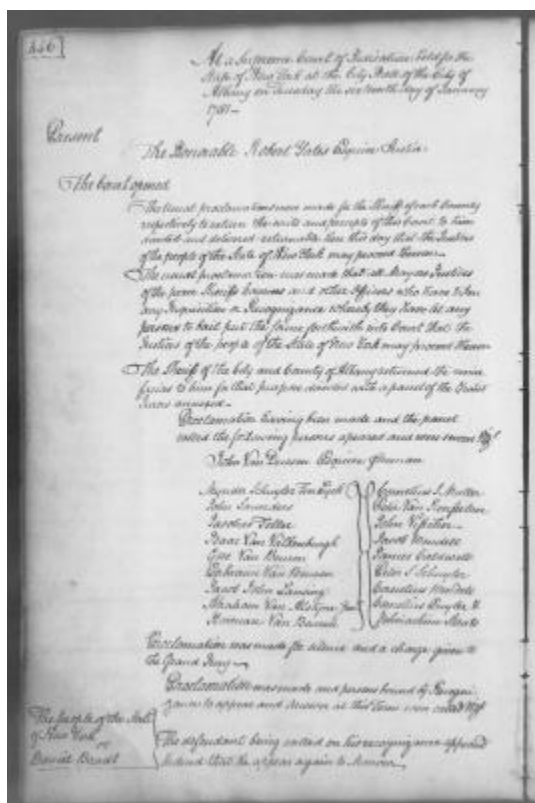 446
At a Supreme Court of Judicature held for the
State of New York at the City Hall of the City of
Albany on Tuesday the sixteenth day of January
1781
Present
The Honorable Robert Yates Esquire Justice
The Court opened
The usual proclamations were made for the Sheriff of each County
respectively to return the writs and precepts of this Court to him
directed and delivered returnable here this day that the Justices
of the people of the State of New York may proceed thereon
The usual proclamation was made that all Mayors Justices
of the peace Sheriffs Coroners and other Officers who have taken
any Inquisition or Recognizance whereby they have let any
person to bail put the same forthwith into Court that the
Justices of the people of the State of New York may proceed thereon
The Sheriff of the City and County of Albany returned the
to him for that purpose directed with a panel of the Grand
annexed
Proclamation having been made and the panel
called the following persons appeared and were sworn
John Van Esquire foreman
Myndert Schuyler Ten Eyck
John Saunders
Jacobus Teller
Isaac Van Valkenburgh
Van Buren
Van
Jacob John Lansing
Abraham Van Alstyne
Harman Van Buren
Cornelius Muller
Van Rensselaer
John Visscher
Jacob
James Caldwell
Peter S Schuyler
Cornelius
Cornelius Cuyler
Proclamation was made for silence and a charge given to
the Grand Jury
Proclamation was made and persons bound by Recogni
zance to appear and answer at this Term were
The People of the State
of New York
David Bradt
The defendant being called on his recognizance appeared
that he appear again